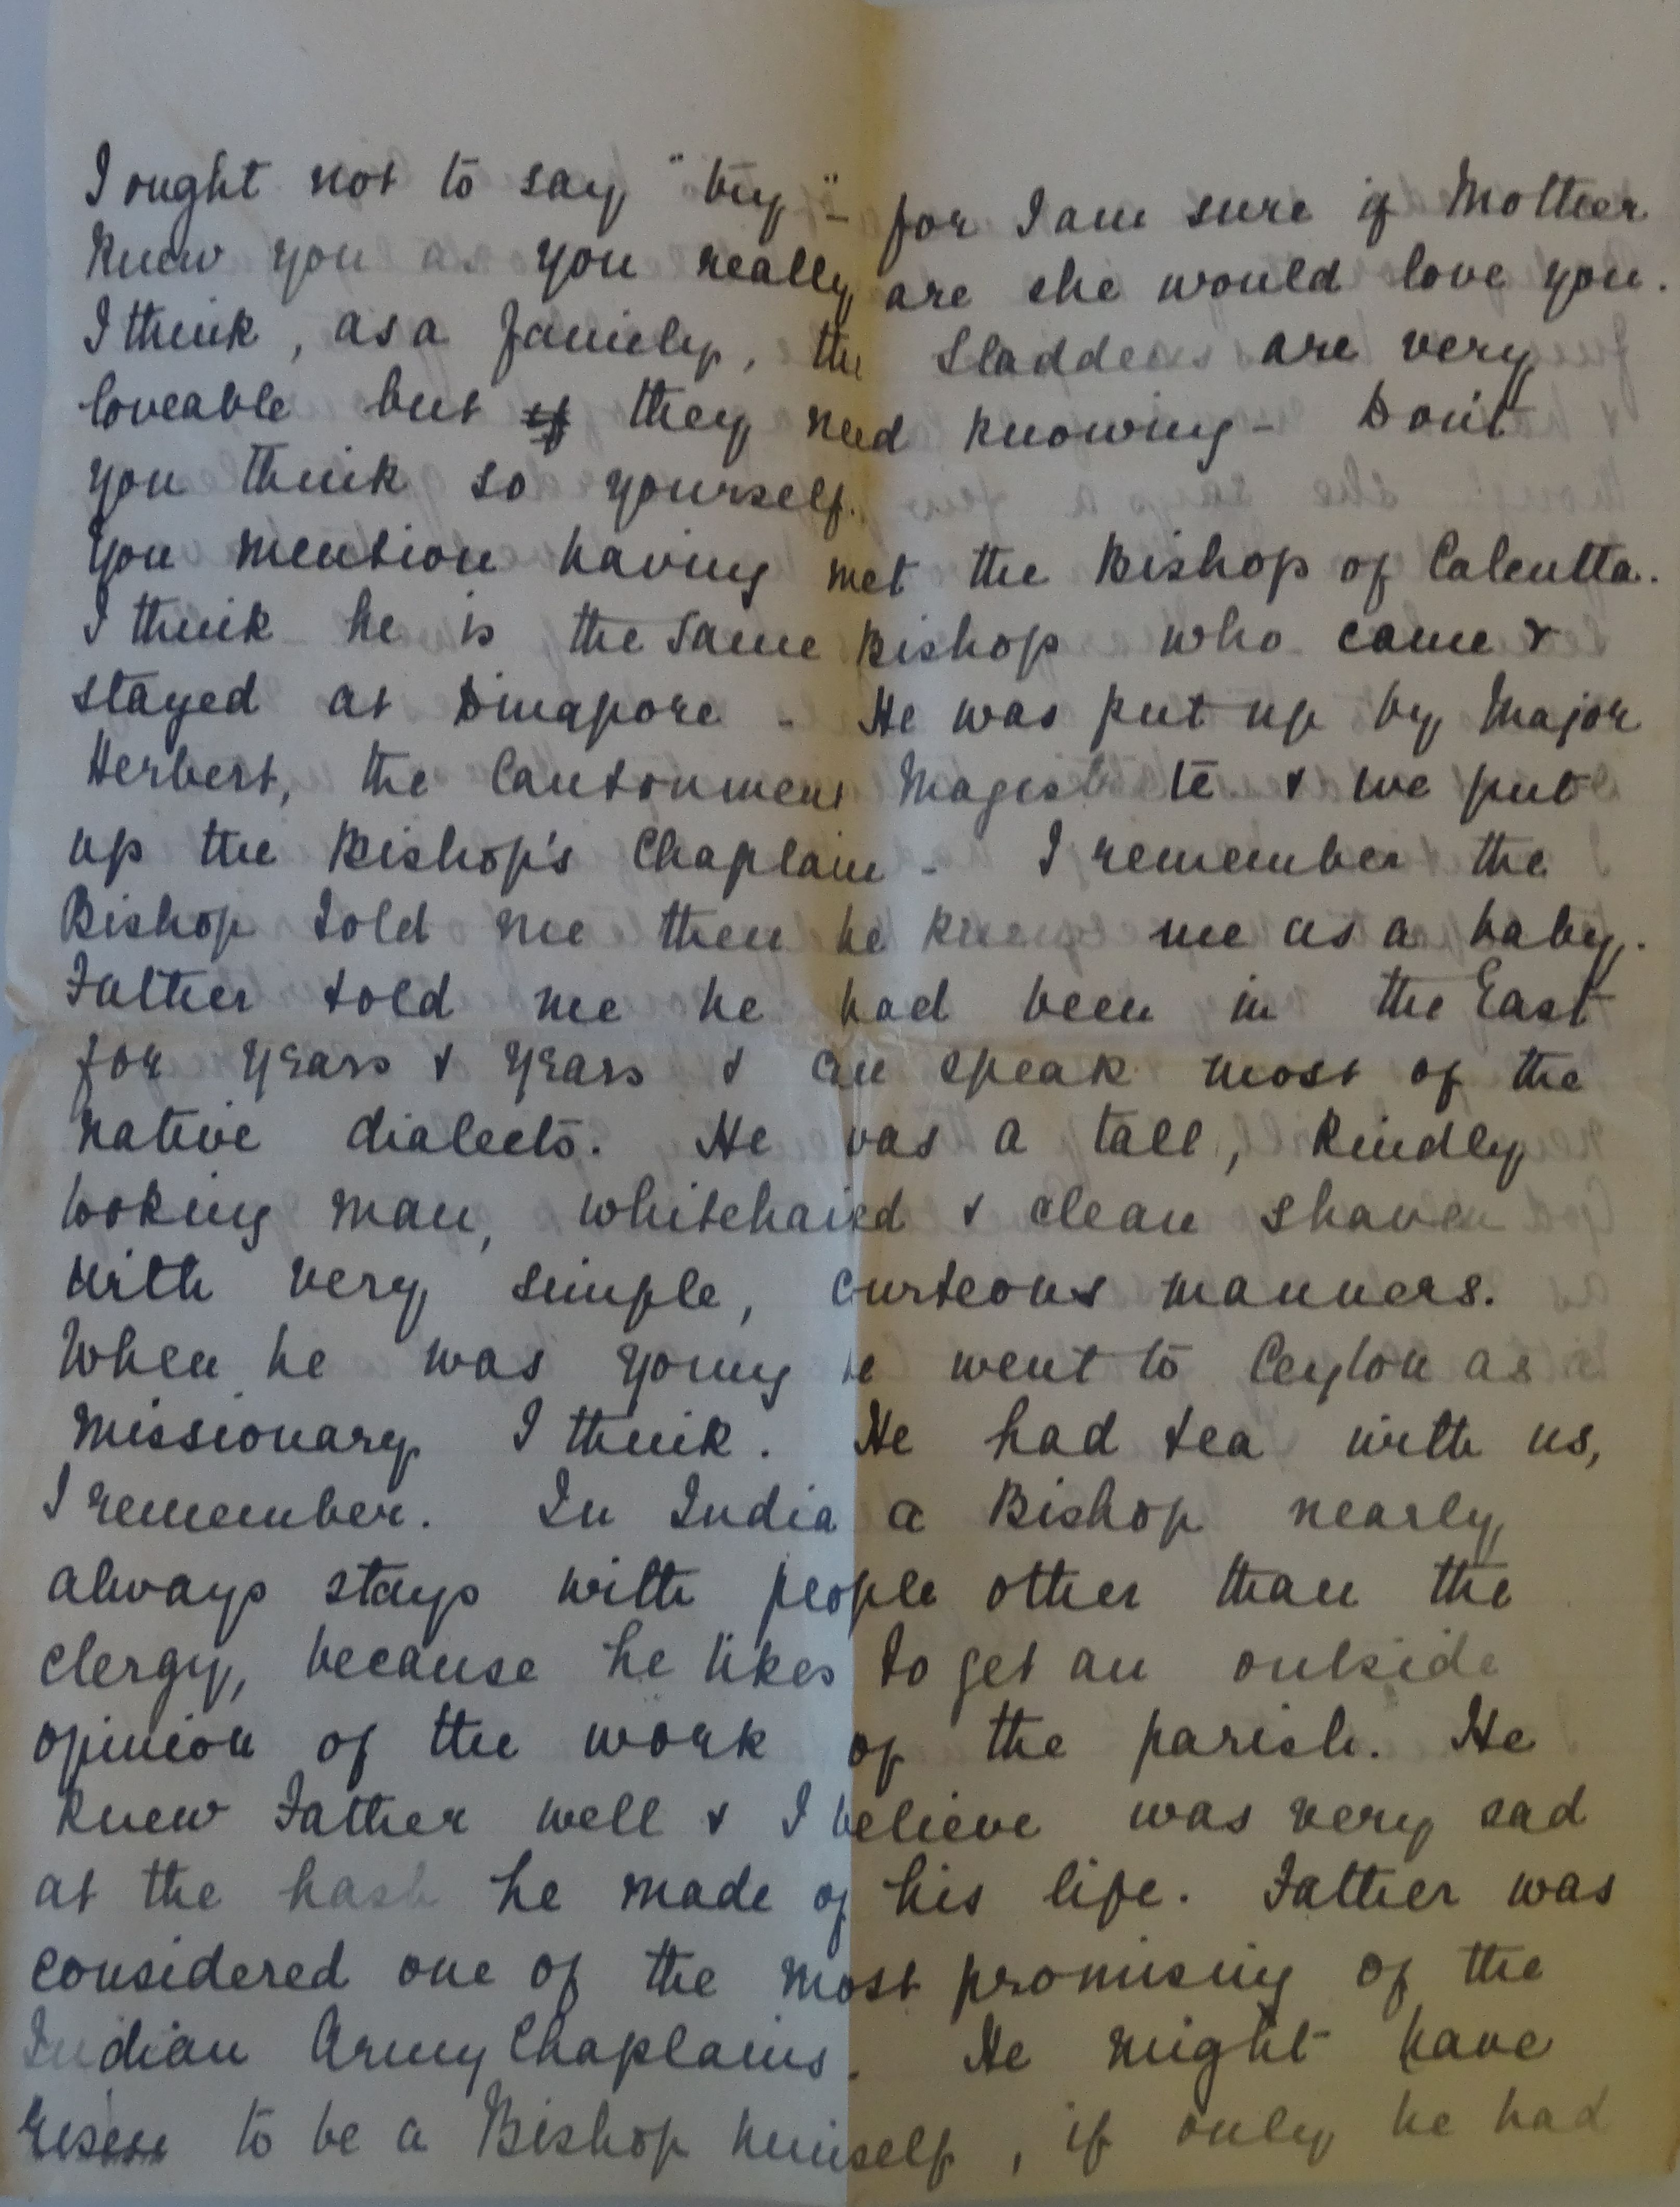 I ought not to say "try" - for I am sure if Mother
knew you as you really are she would love you.
I think, as a family, the Sladdens are very
loveable but if they need knowing - Don't
you think so yourself.
You mention having met the Bishop of Calcutta.
I think he is the same Bishop who came &
stayed at Dinapore - He was put up by Major
Herbert, the Cantonment Magistrate & we put
up the Bishop's Chaplain - I remember the
Bishop told me then he knew me as a baby.
Father told me he had been in the East
for years & years & can speak most of the
native dialects. He was a tall, kindly
looking man, whitehaired & clean shaven
with very simple, curteous manners.
When he was young he went to Ceylon as
missionary I think. He had tea with us,
I remember. In India a Bishop nearly
always stays with people other than the
clergy, because he likes to get an outside
opinion of the work of the parish. He
knew Father well & I believe was very sad
at the hash he made of his life. Father was
considered one of the most promising of the
Indian Army Chaplains. He might have
risen to be a Bishop himself, if only he had